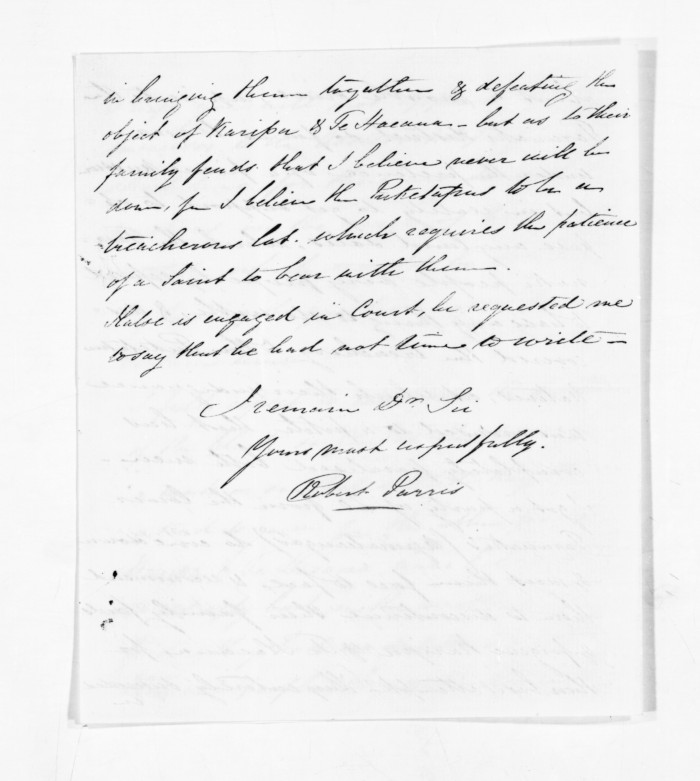 in bringing them together & defeating the
object of Karipa & Te Hocana – but as to their
family feuds that I believe never will be
done, for I believe the Puketapus to be a
treacherous lot. which requires the patience
of a Saint to bear with them.
Halse is engaged in Court, he requested me
to say that he had not time to write –
I remain Dr. Sir
Yours most respectfully.
Robert Parris